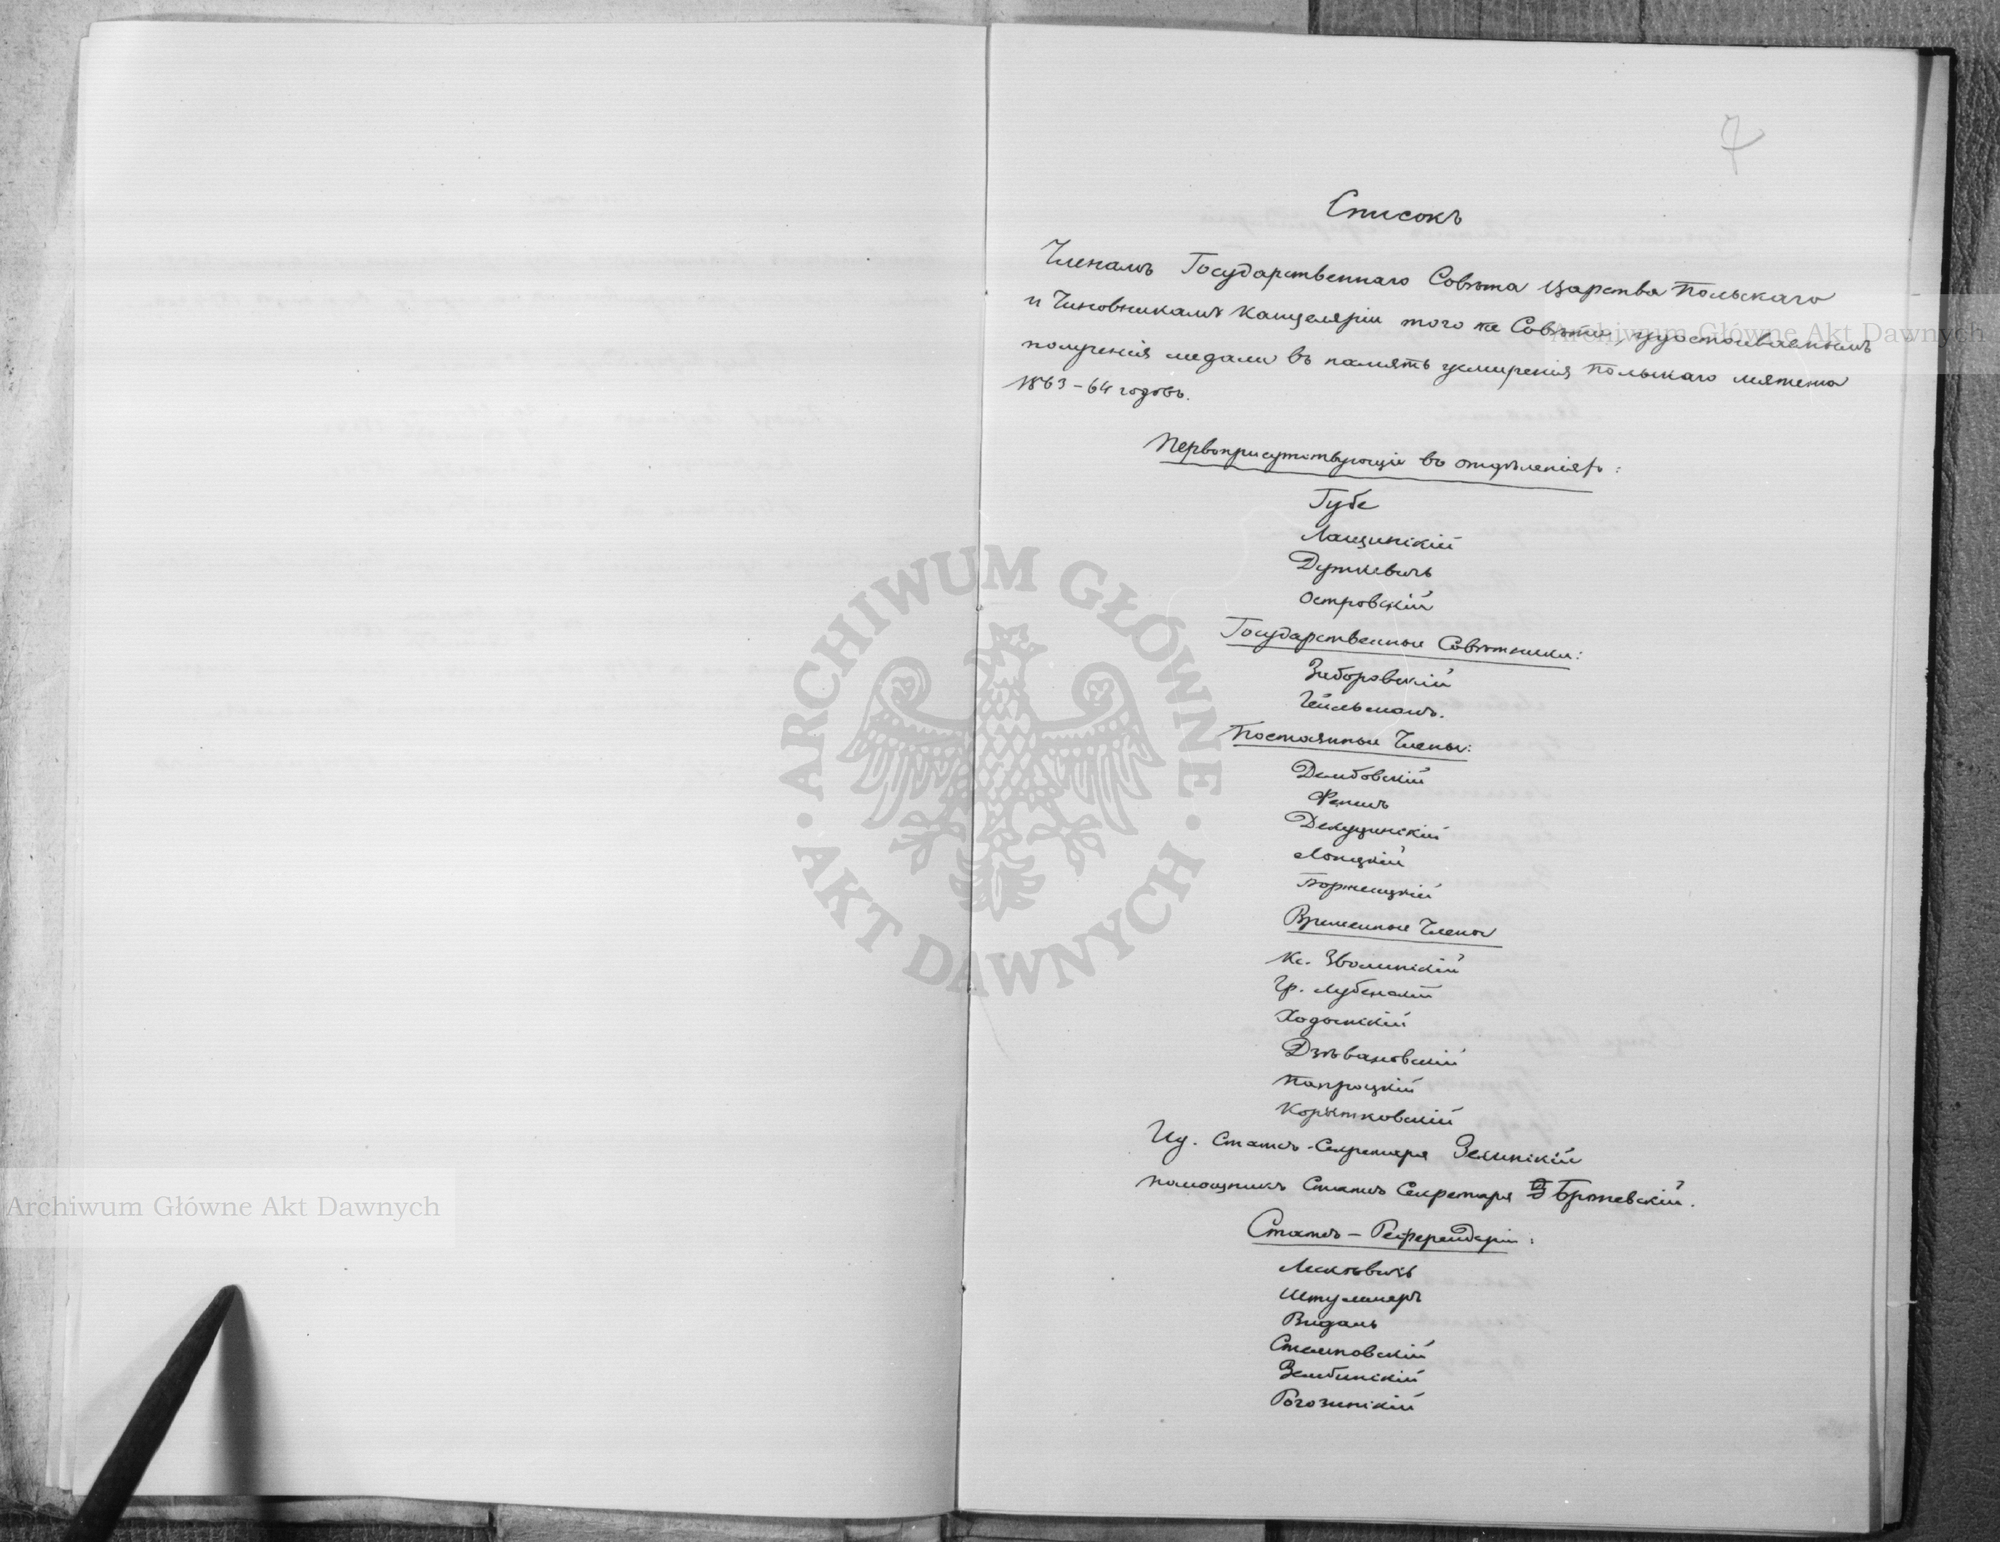 7
Списокъ
Членамъ Государственнаго Совѣта Царства Польскаго
и Чиновникамъ Канцеляріи того же Совѣта, удостоиваемымъ
полученія медали въ память усмиренія Польскаго мятежа
1863-64 годовъ.
Первоприсутствующіе въ отдѣленіях:
Губе
Лащинскій
Дуткевичъ
Островскій
Государственные Совѣтники:
Зиборовскій
Гейльманъ.
Постоянные Члены:
Дембовскій
Феншъ
Лонцкій
Временные Члены
Кс. Зволинскій
Гр. Лубенскій
Ходынскій
Дзѣвановскій
Папроцкій
Корытковскій
Ид. Статсъ-Секретаря Зелинскій
Помощникъ Статсъ Секретаря Брженскій.
Статсъ-Референдаріи:
Видаль
Стемповскій
Зембинскій
Рогозинскій
ARCHIWUM GŁÓWNE AKT DAWNYCH
Archiwum Główne Akt Dawnych
Archiwum Główne Akt Dawnych